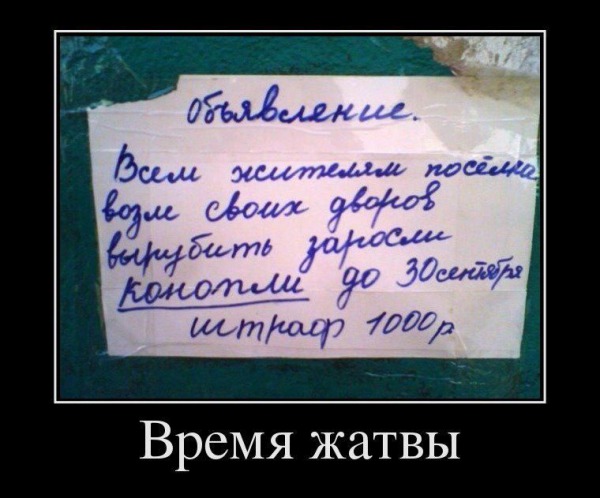 Объявление.
Всем жителям посёлка
возле своих дворов
вырубить заросли
конопли до 30 сентября
штраф 1000 р
Время жатвы